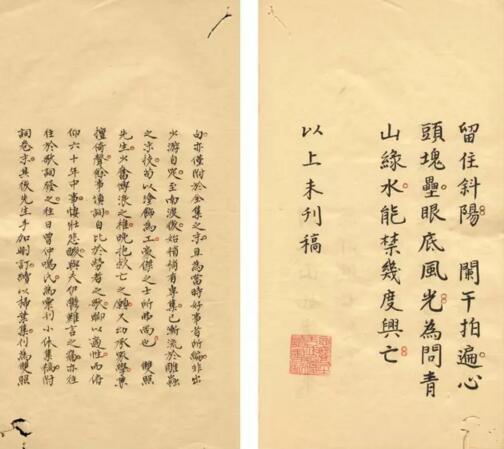 留住斜陽 闌干拍遍心
頭塊壘眼底風光為問青
山綠水能禁幾度興亡
以上未刊稿
句亦僅附於全集之末且為當時好事者所編非出
少游自定至南渡後始稍稍有專集已漸流於雕蟲
之末技苟以塗飾為工豪傑之士所弗尚也 雙照
先生少奮博浪之椎晚抱亡之又幼承家學兼
擅倚聲餘事填詞自比於勞者之歌聊以適性而俯
仰六十年中事壯悲酸與夫伊鬱難言之痛亦往
往於歌詞發之往日曾仲鳴氏為彙刊小休集稿附
詞卷末其後先生手加刪訂續以掃葉集刊為雙照